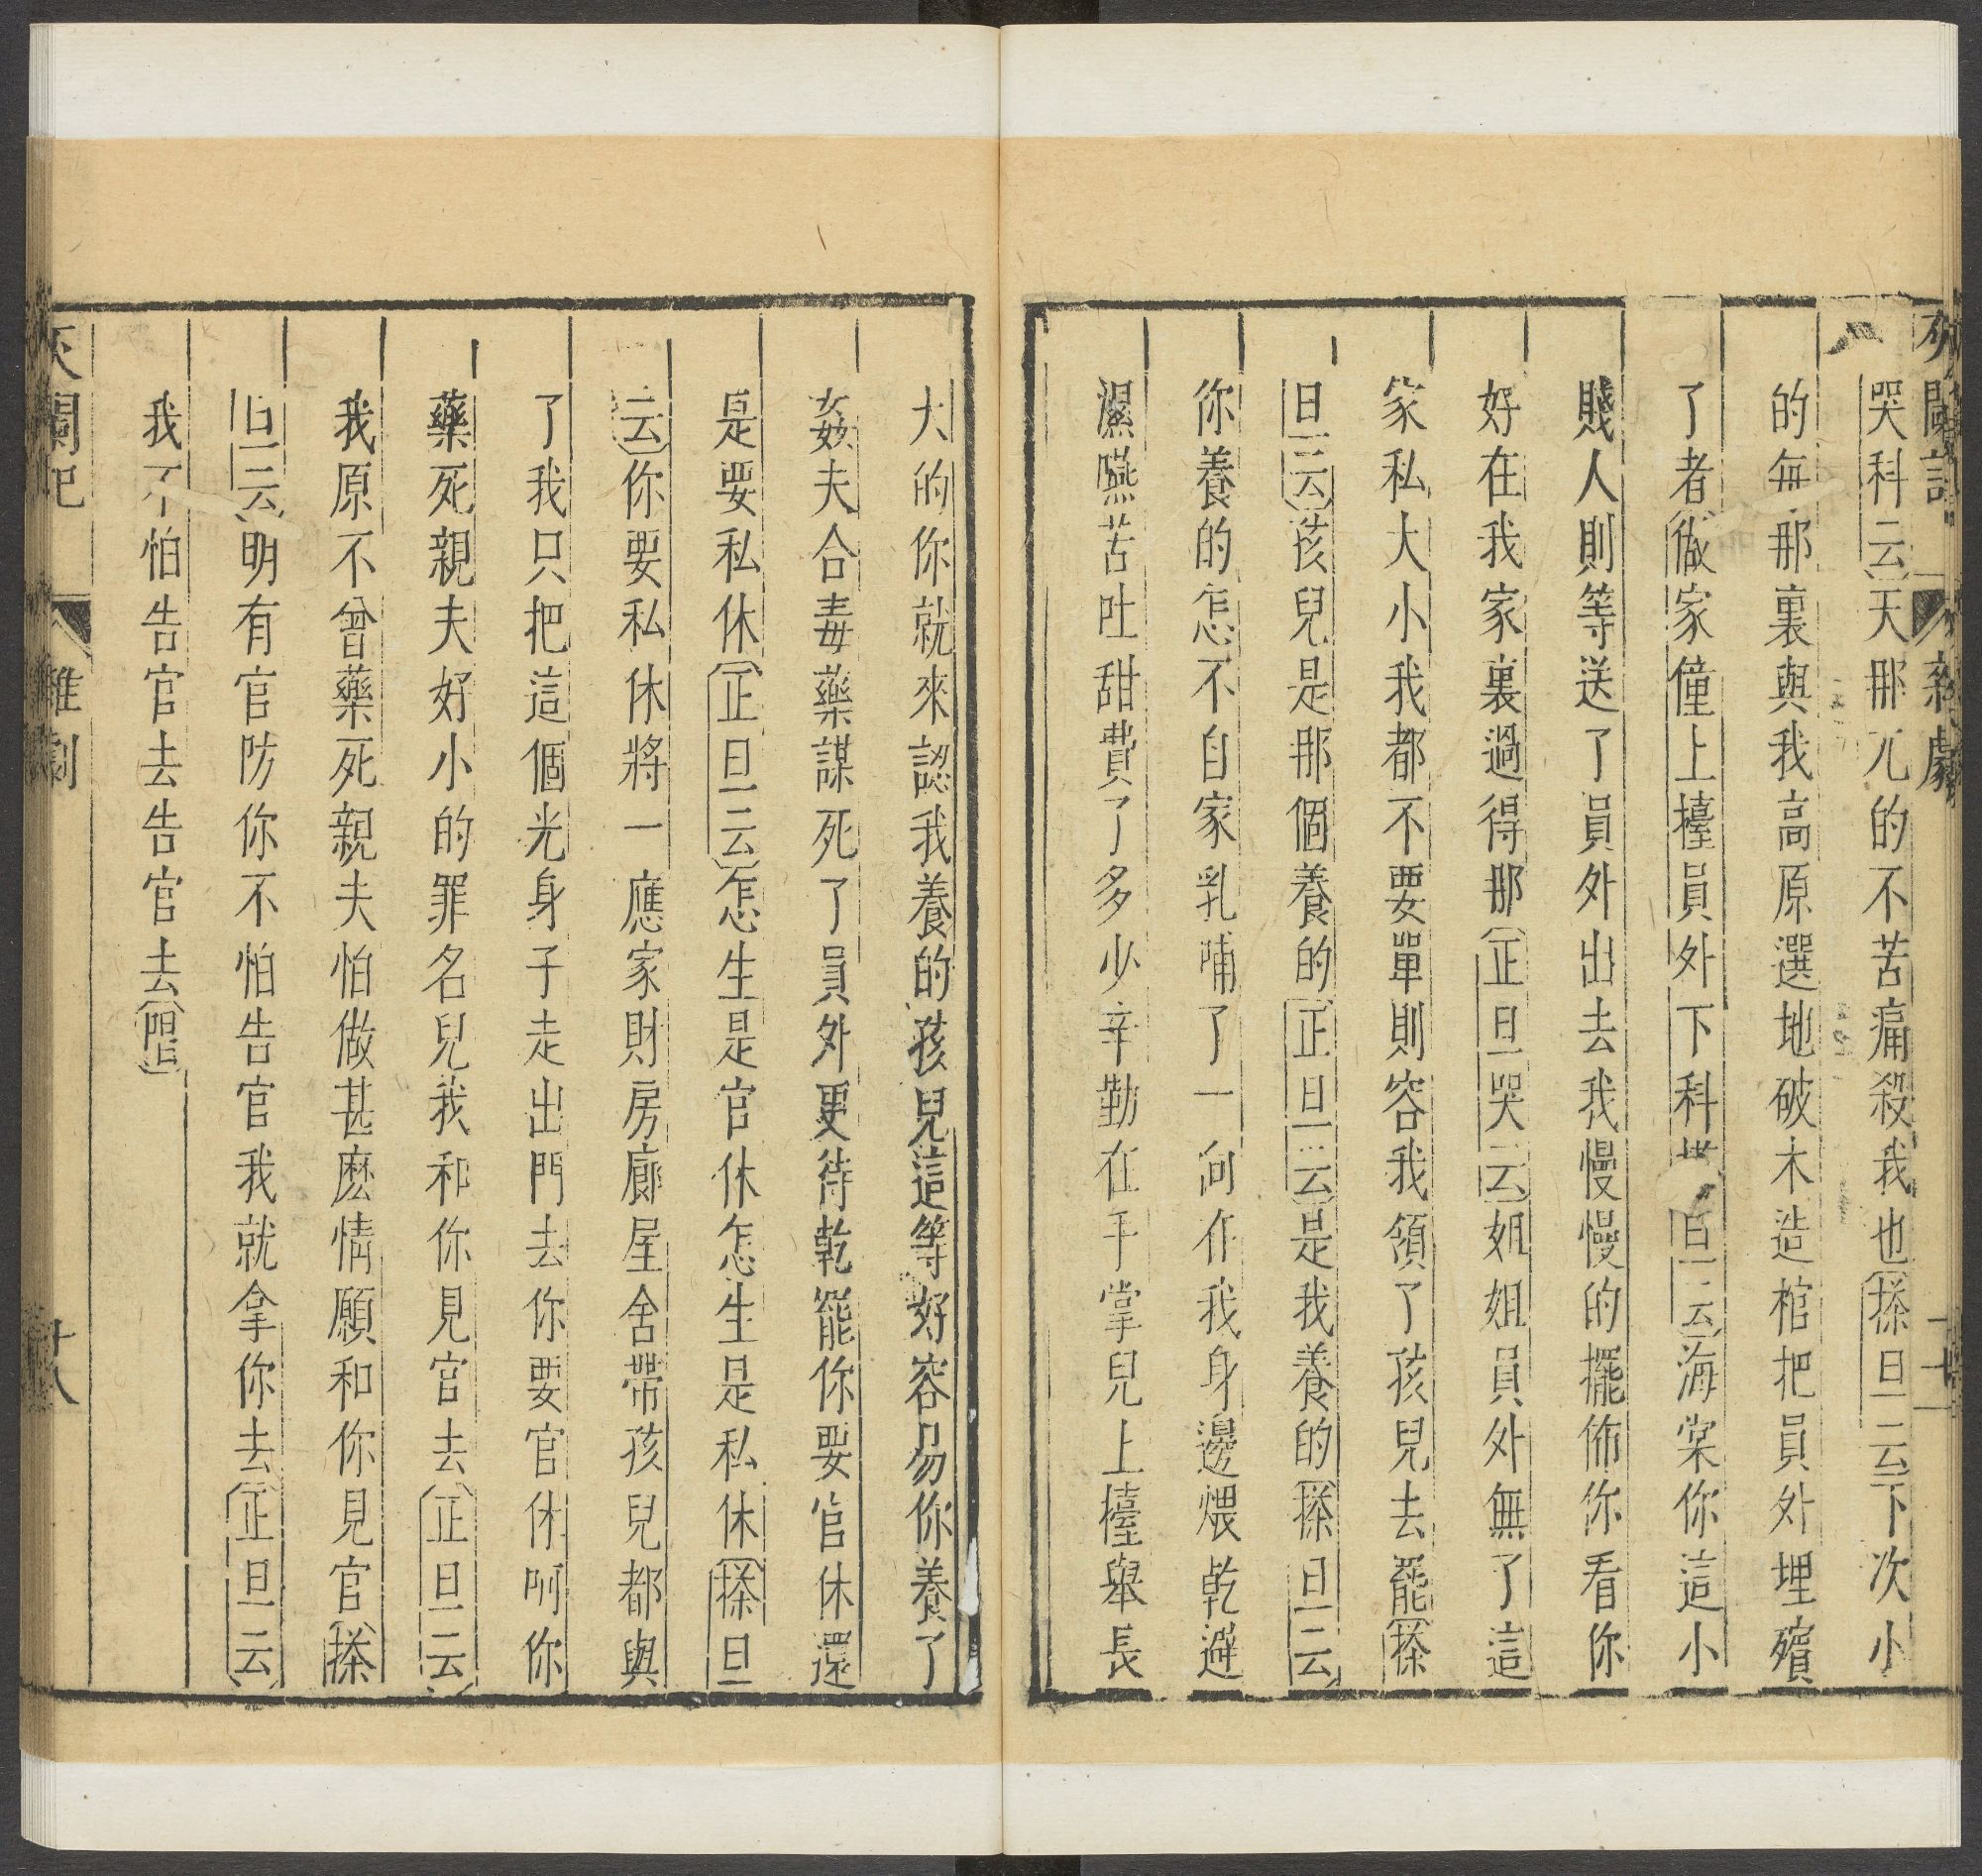 灰闌記 雜劇 十一
哭科云天那兀的不苦痛殺我也搽旦云下次小
的每那裏與我高原選地破木造棺把員外埋殯
了者做家僮上擡員外下科搽旦云海棠你這小
賤人則等送了員外出去我慢慢的擺佈你看你
好在我家裏過得那正旦哭云姐姐員外無了這
家私大小我都不要單則容我領了孩兒去罷搽
旦云孩兒是那個養的正旦云是我養的搽旦云
你養的怎不自家乳哺了一向在我身邊煨乾避
濕嚥苦吐甜費了多少辛勤在手掌兒上擡舉長
大的你就來認我養的孩兒這等好容易你養了
姦夫合毒藥謀死了員外更待乾罷你要官休還
是要私休正旦云怎生是官休怎生是私休搽旦
云你要私休將一應家財房廊屋舍帶孩兒都與
了我只把這個光身子走出門去你要官休呵你
藥死親夫好小的罪名兒我和你見官去正旦云
我原不曾藥死親夫怕做甚麽情願和你見官搽
旦云明有官防你不怕告官我就拿你去正旦云
我不怕告官去告官去
灰闌記 雜劇 十八